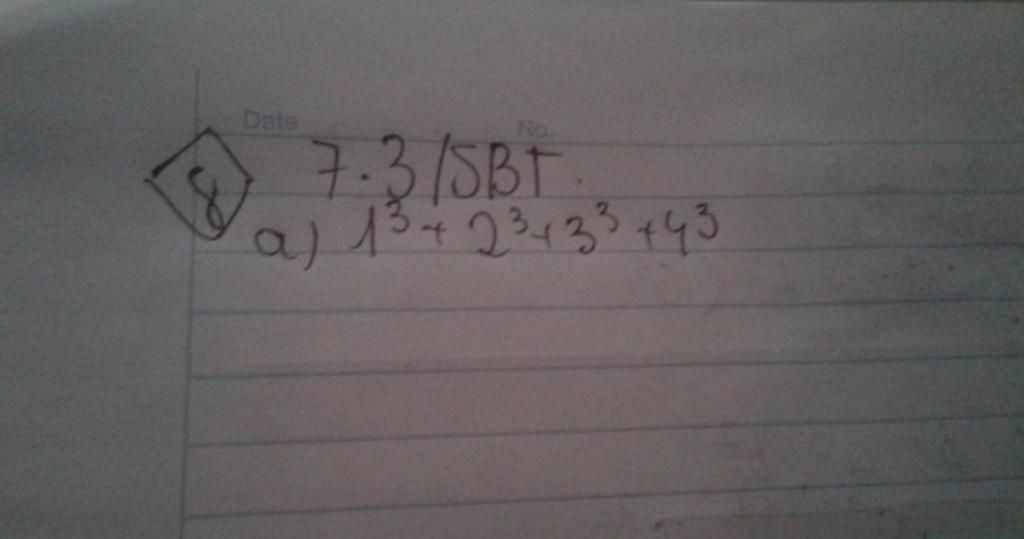 Date No.
8 7.3/SBT.
a) 1³ + 2³ + 3³ + 4³